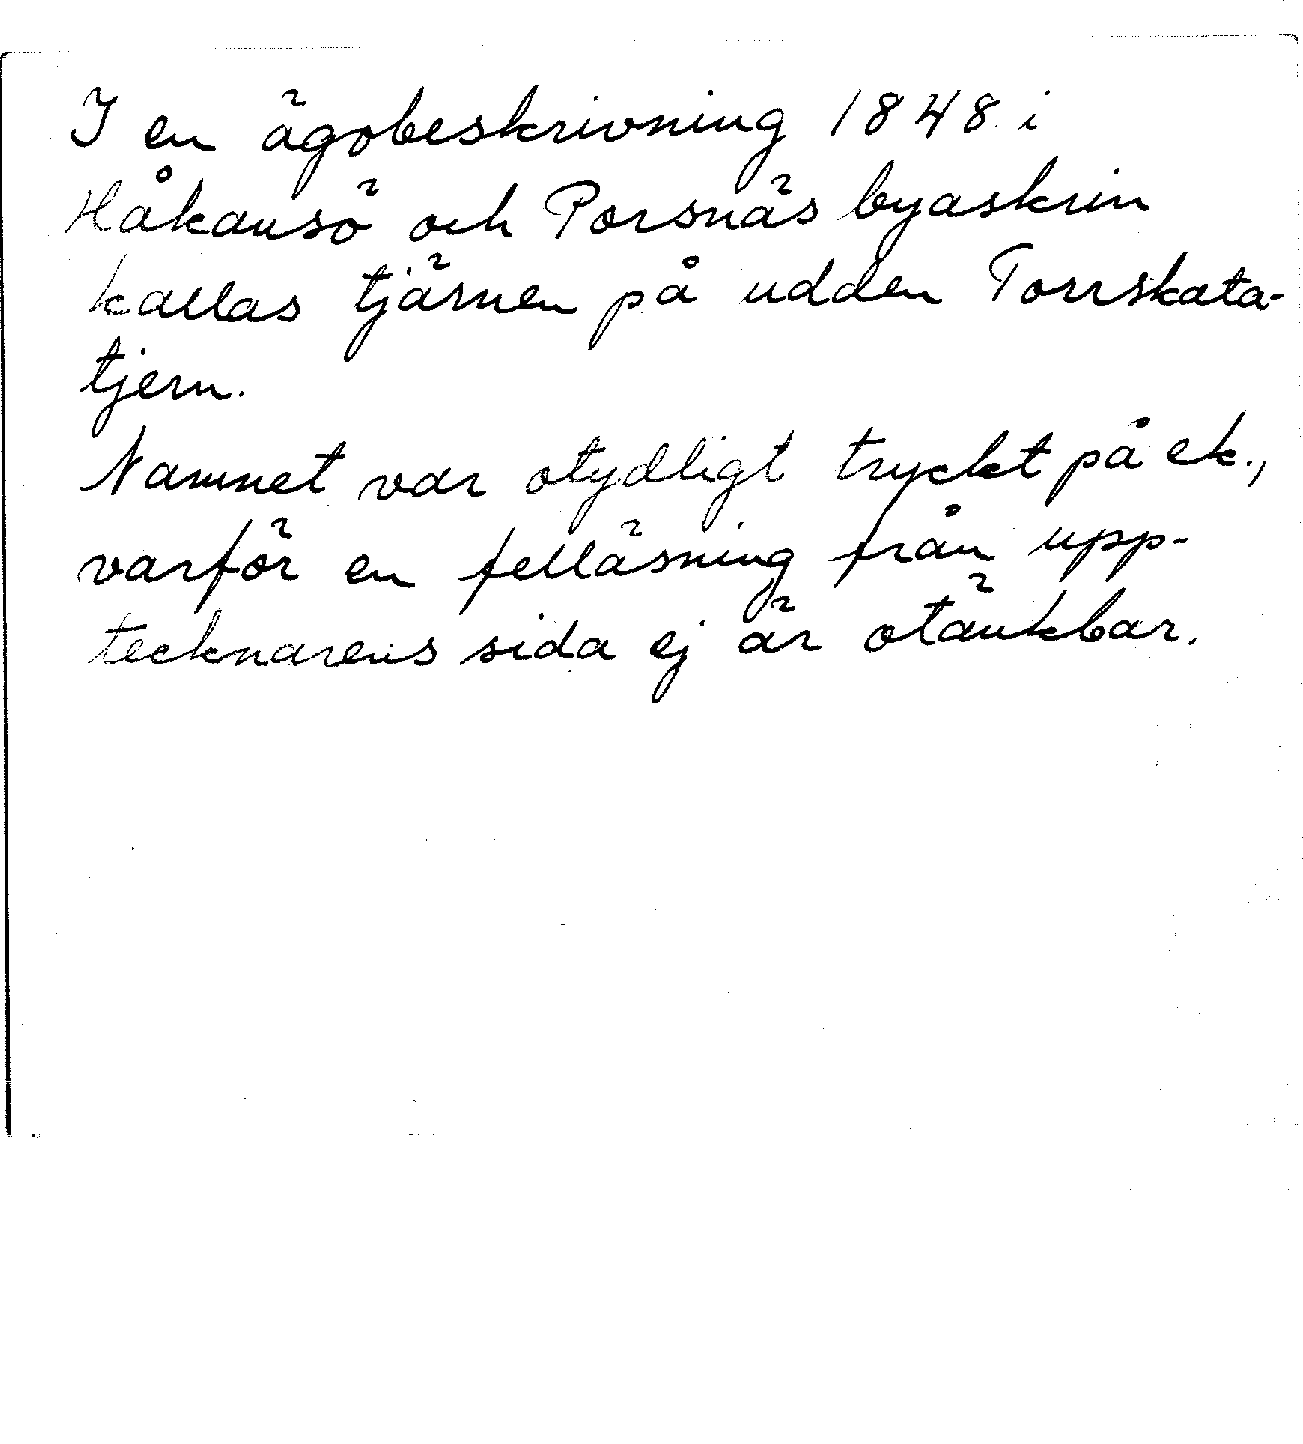 I en ägobeskrivning 1848 i
Håkansö och Porsnäs byaskrin
kallas tjärnen på udden Torrskata-
tjern.
Namnet var otydligt tryckt på ek.,
varför en felläsning från upp-
tecknarens sida ej är otänkbar.